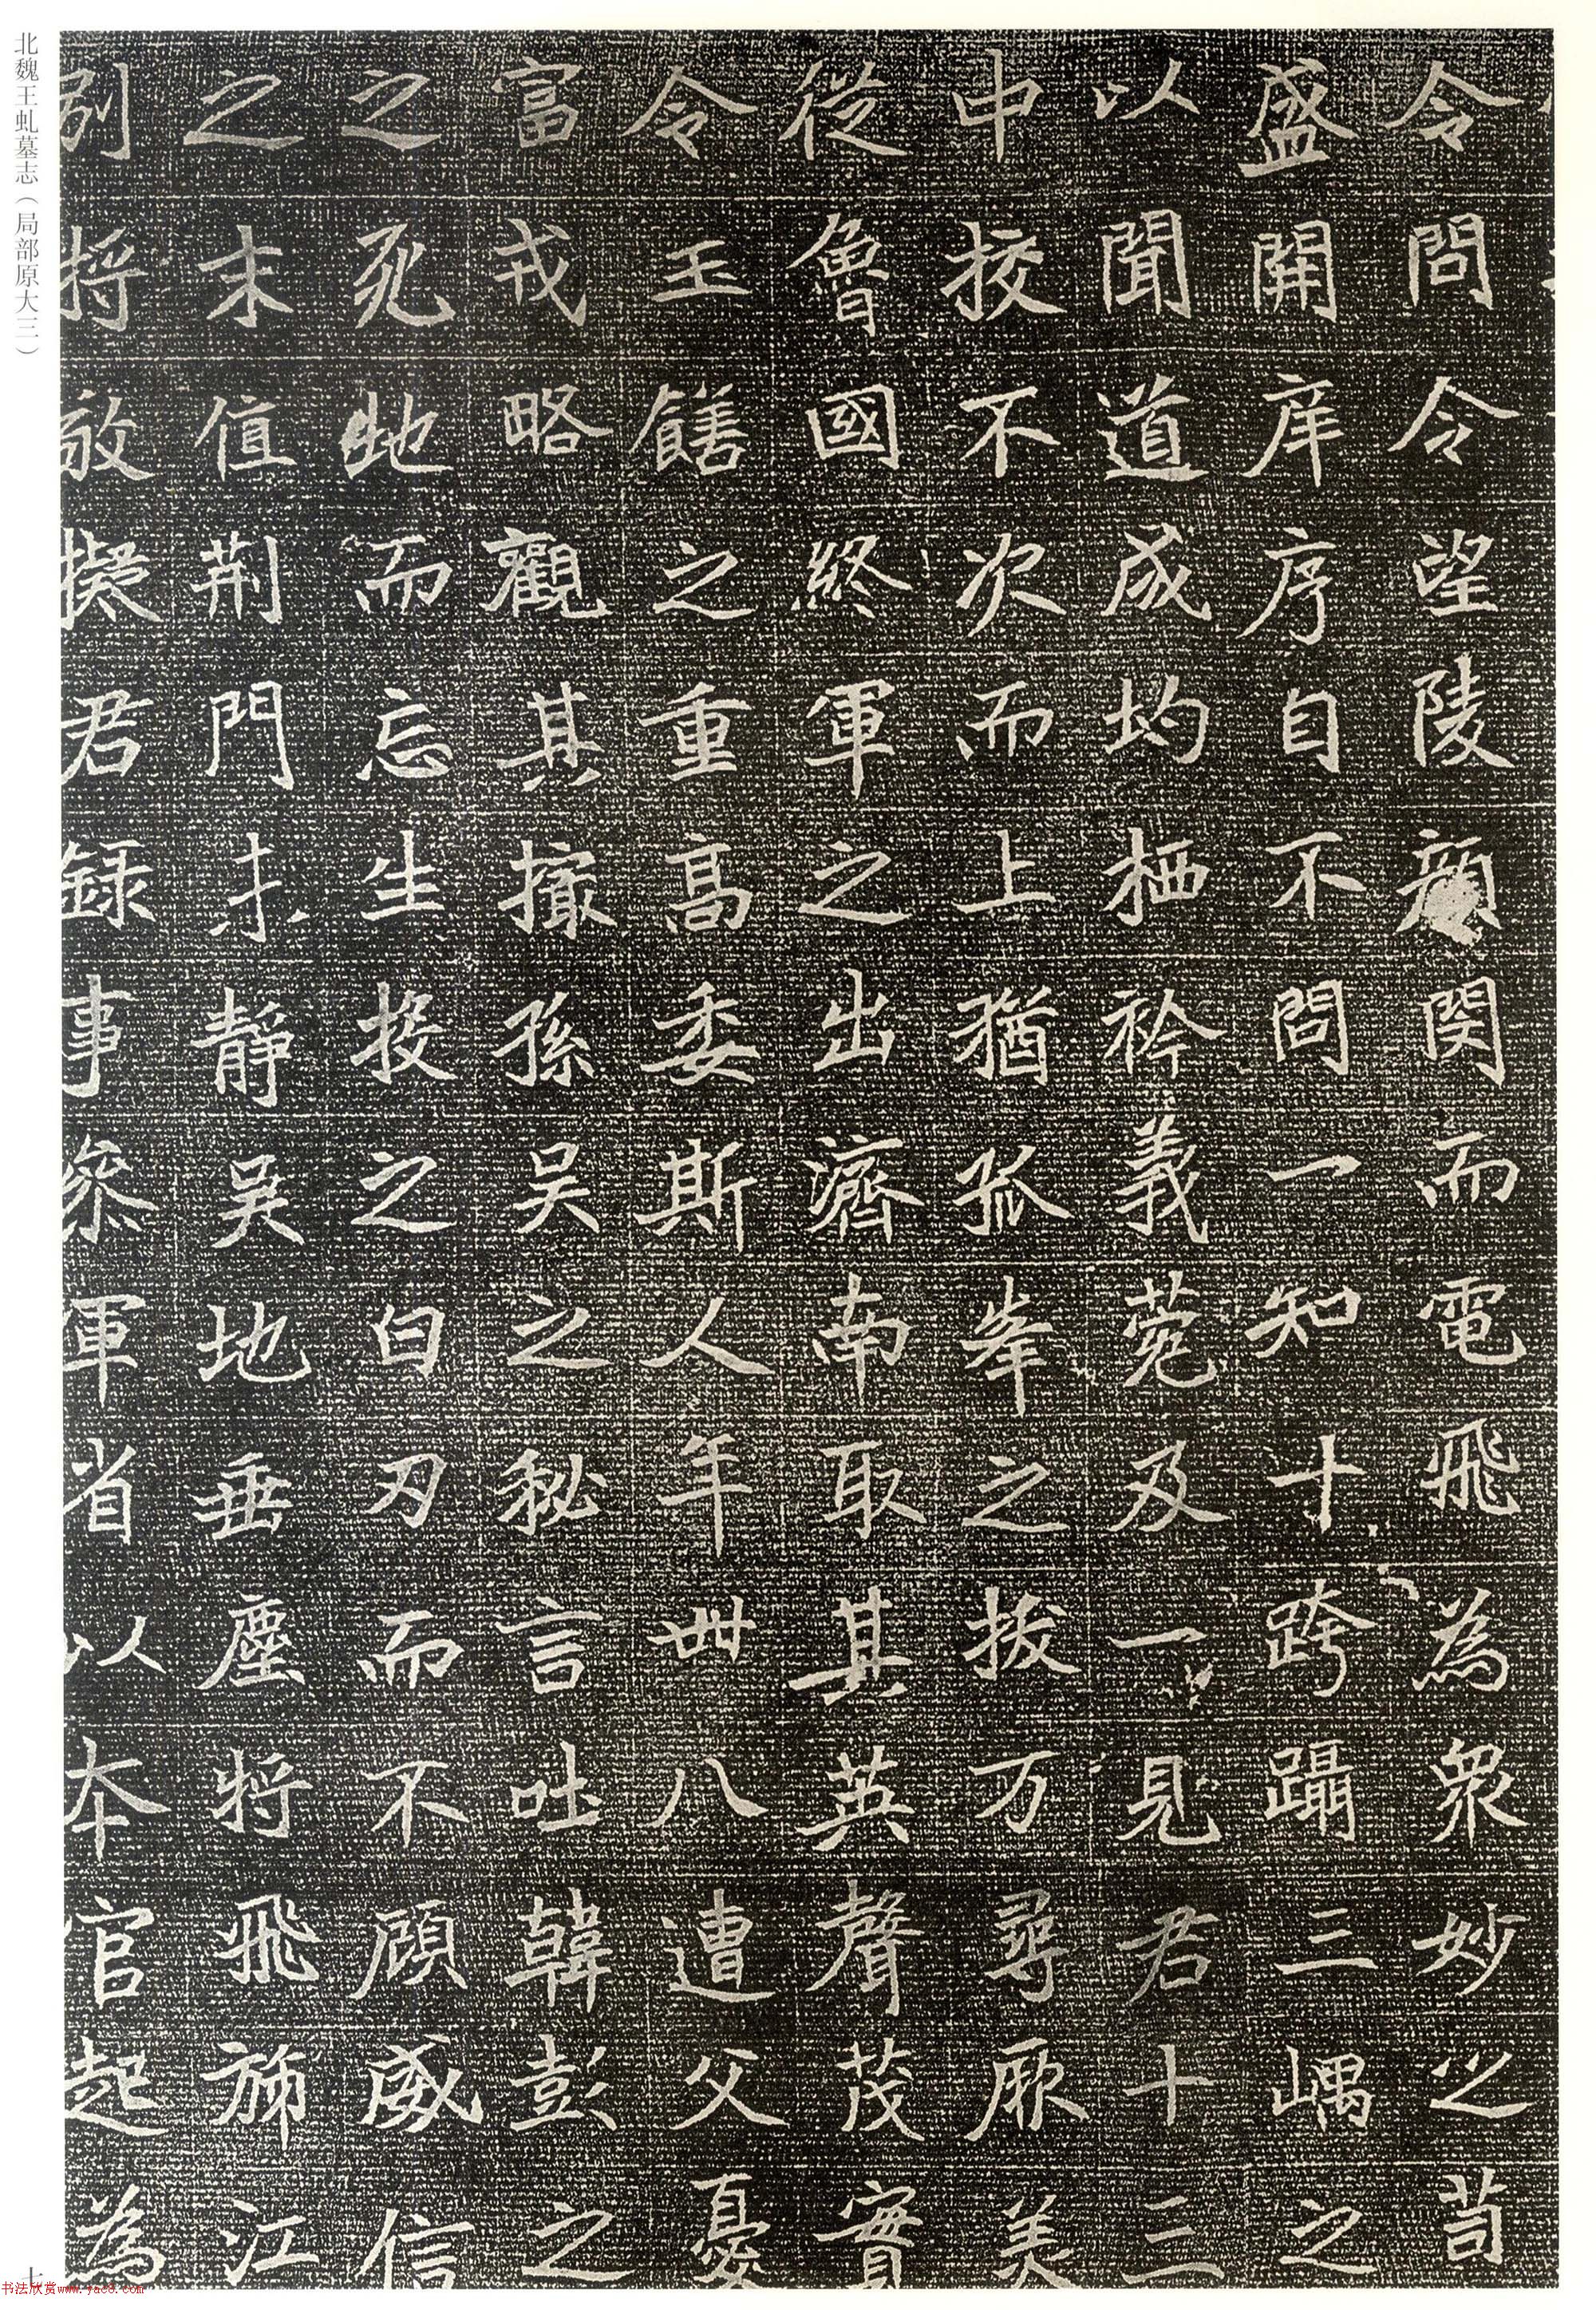 令問令望陵顔閔而電飛為衆妙之苟
盛開庠序自不問一知十跨躡三嵎之
以聞道成均栖衿義菀及一見君十三
中挍不次而上猶孤峯之拔万尋厥美
從魯國終軍之出濟南取其英聲茂實
令王饍之重高委斯人年卅八遭父憂
富戎略觀其撮孫吴之秘言吐韓彭之
之死地而忘生投之白刃而不顧威信
之末值荆門扌靜吴地垂塵将飛斾江
别将放擬君録事叅軍省以本官起為
北魏王虬墓志（局部原大三）
七
书法欣赏www.yac8.com